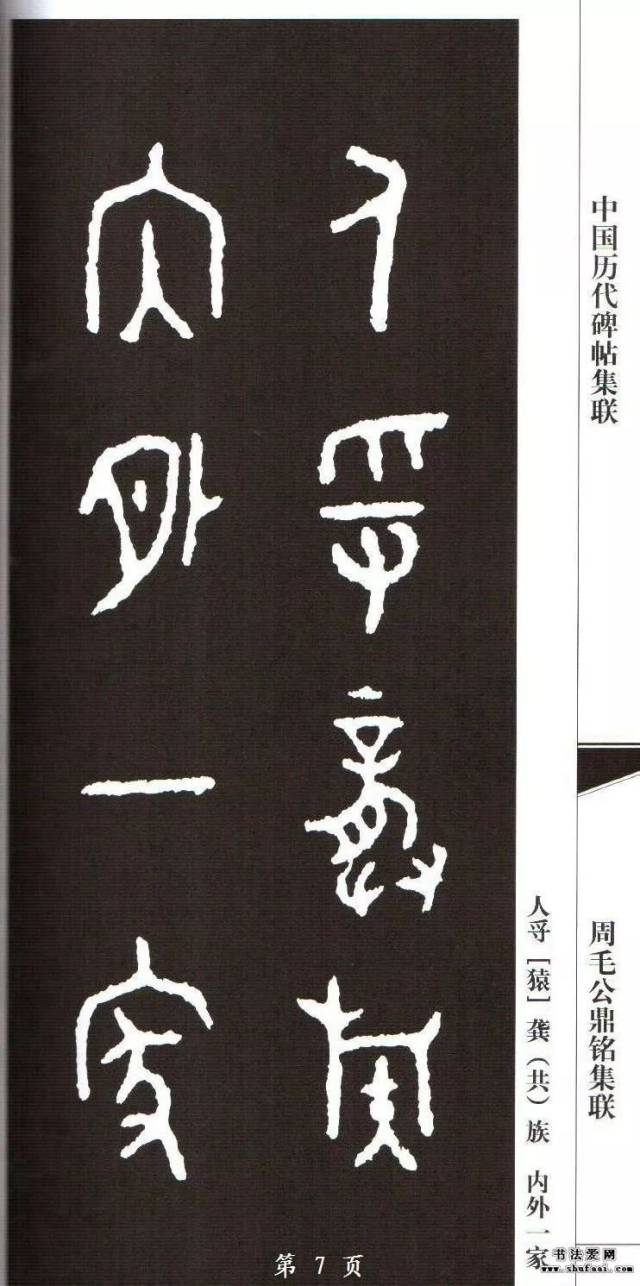 中国历代碑帖集联
周毛公鼎铭集联
人寽龏族
内外一家
人寽［猿］龚（共）族 内外一家
第 7 页
书法爱网
www.shufaai.com